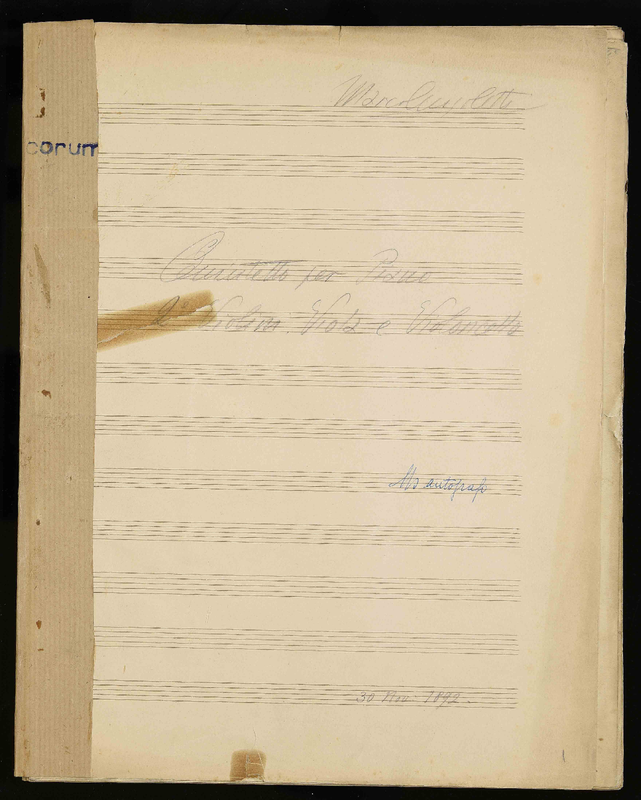 Marco Anzoletti
corum
Quintetto per Piano
2 Violini, Viola e Violoncello
Ms autógraf
30 Nov. 1892.
1